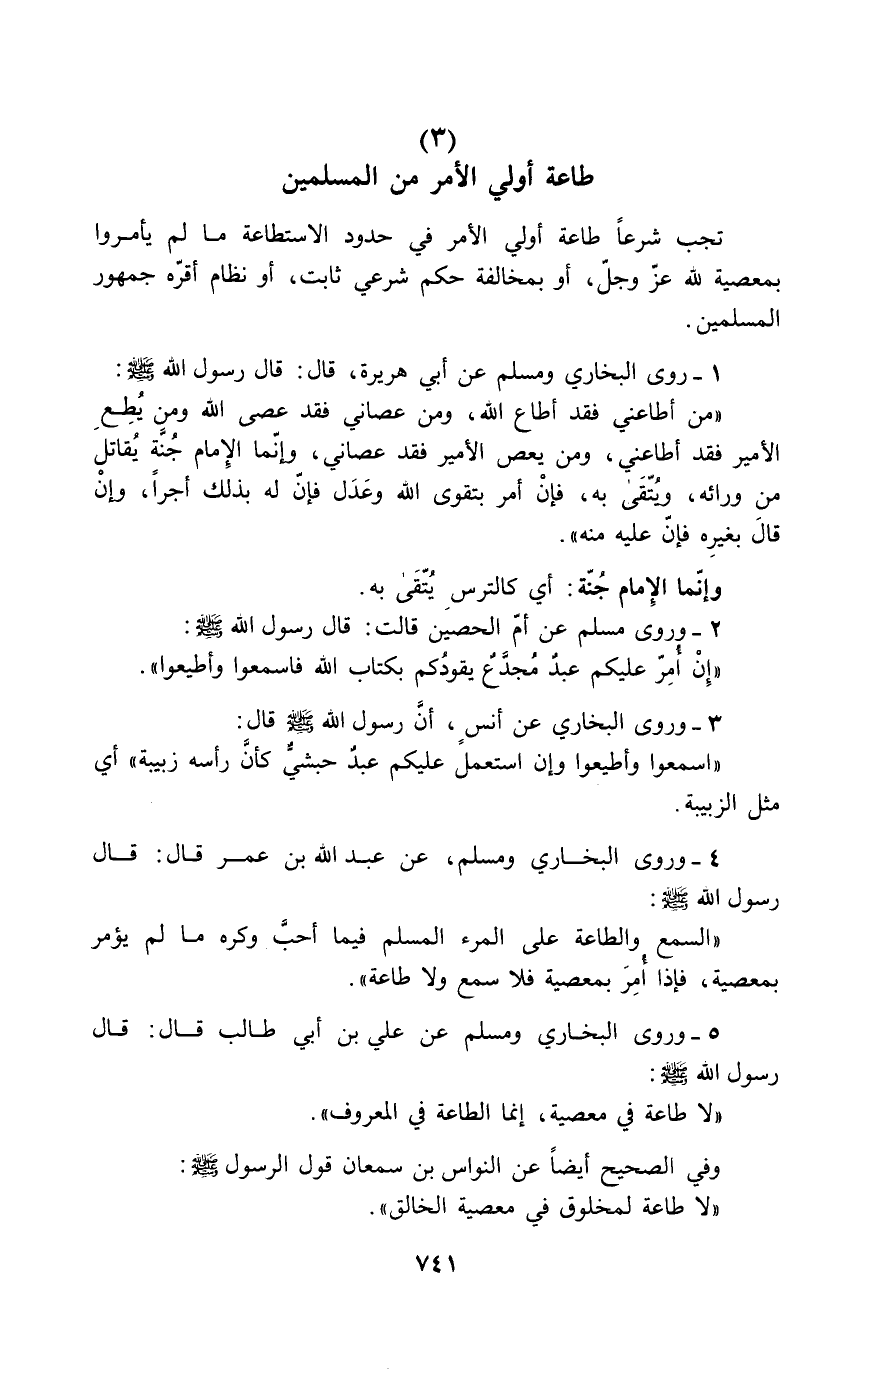 (٣)
طاعة أولي الأمر من المسلمين
تجب شرعاً طاعة أولي الأمر في حدود الاستطاعة ما لم يأمروا
بمعصية لله عزّ وجلّ، أو بمخالفة حكم شرعي ثابت، أو نظام أقرّه جمهور
المسلمين.
١ ـ روى البخاري ومسلم عن أبي هريرة، قال: قال رسول الله ﷺ:
«من أطاعني فقد أطاع الله، ومن عصاني فقد عصى الله ومن يُطِعِ
الأمير فقد أطاعني، ومن يعص الأمير فقد عصاني، وإنّما الإِمام جُنَّة يُقاتل
من ورائه، ويُتّقَىٰ به، فإنْ أمر بتقوى الله وعَدَل فإنّ له بذلك أجراً، وإنْ
قالَ بغيرِه فإنّ عليه منه».
وإنّما الإِمام جُنّة: أي كالترسِ يُتّقَىٰ به.
٢ ـ وروى مسلم عن أمّ الحصين قالت: قال رسول الله ﷺ:
«إِنْ أُمِرّ عليكم عبدٌ مُجدَّعٌ يقودُكم بكتاب الله فاسمعوا وأطيعوا».
٣ ـ وروى البخاري عن أنسٍ، أنَّ رسول الله ﷺ قال:
«اسمعوا وأطيعوا وإن استعمل عليكم عبدٌ حبشيٌّ كأنَّ رأسه زبيبة» أي
مثل الزبيبة.
٤ ـ وروى البخاري ومسلم، عن عبد الله بن عمر قال: قال
رسول الله ﷺ:
«السمع والطاعة على المرء المسلم فيما أحبَّ وكره ما لم يؤمر
بمعصية، فإذا أُمِرَ بمعصية فلا سمع ولا طاعة».
٥ ـ وروى البخاري ومسلم عن علي بن أبي طالب قال: قال
رسول الله ﷺ:
«لا طاعة في معصية، إنما الطاعة في المعروف».
وفي الصحيح أيضاً عن النواس بن سمعان قول الرسول ﷺ:
«لا طاعة لمخلوق في معصية الخالق».
٧٤١